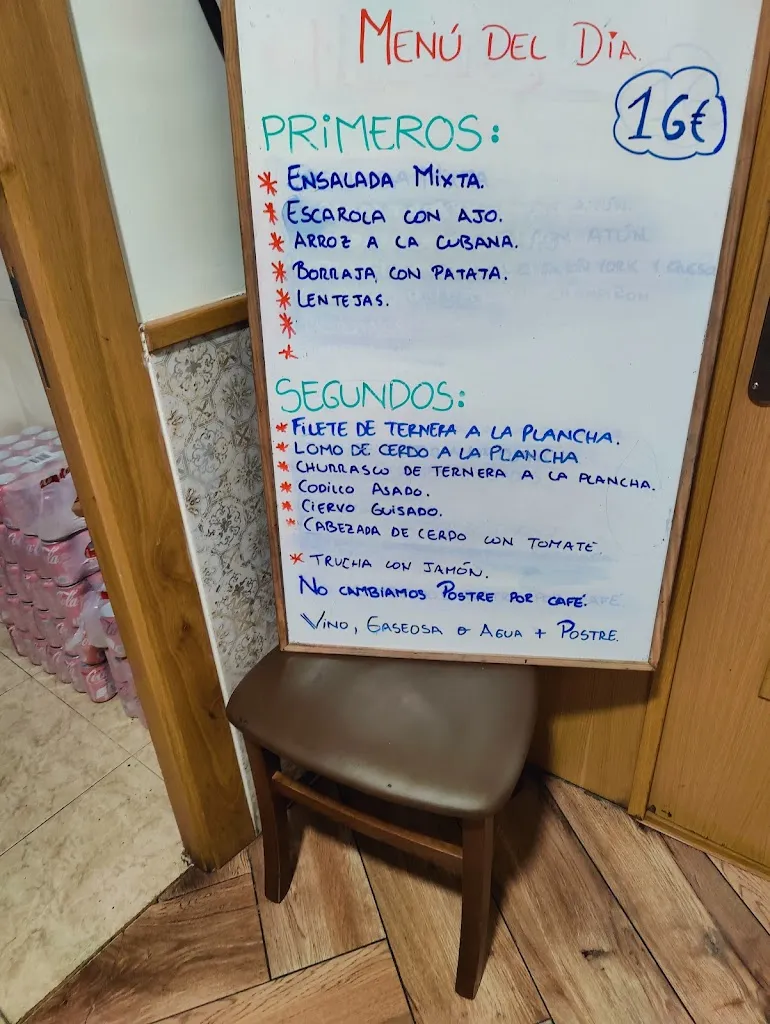 MENÚ DEL DÍA.
16€
PRIMEROS:
* ENSALADA MIXTA.
* ESCAROLA CON AJO.
* ARROZ A LA CUBANA.
* BORRAJA CON PATATA.
* LENTEJAS.
*
*
SEGUNDOS:
* FILETE DE TERNERA A LA PLANCHA.
* LOMO DE CERDO A LA PLANCHA
* CHURRASCO DE TERNERA A LA PLANCHA.
* CODILLO ASADO.
* CIERVO GUISADO.
* CABEZADA DE CERDO CON TOMATE.
* TRUCHA CON JAMÓN.
NO CAMBIAMOS POSTRE POR CAFÉ.
VINO, GASEOSA O AGUA + POSTRE.